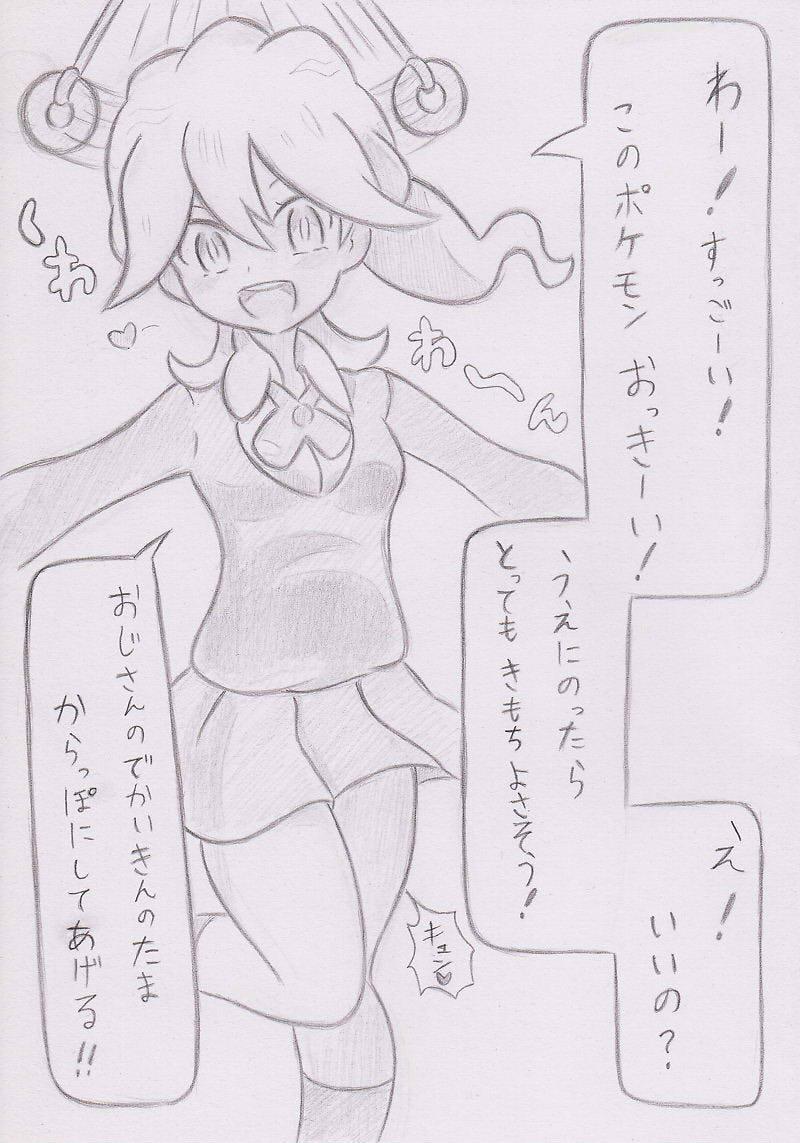 わー！すっごーい！
このポケモン おっきーい！
うえにのったら
とっても きもち よさそう！
え！
いいの？
くわ
わ〜ん
キュン♡
おじさんのでかいきんのたま
からっぽにしてあげる！！